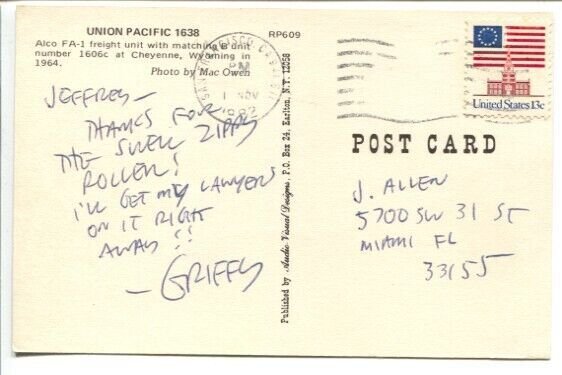 UNION PACIFIC 1638 RP609
Alco FA-1 freight unit with matching B unit
number 1606c at Cheyenne, Wyoming in
1964.
Photo by Mac Owen
JEFFREY—
THANKS FOR
THE SWELL ZIPPY
ROLLER!
I'LL GET MY LAWYERS
ON IT RIGHT
AWAY!!
—GRIFFY
Published by Audio-Visual Designs, P.O. Box 24, Earlton, N.Y. 12058
SAN FRANCISCO, CA
PM
1 NOV
1982
United States 13c
POST CARD
J. ALLEN
5700 SW 31 ST
MIAMI FL
33155